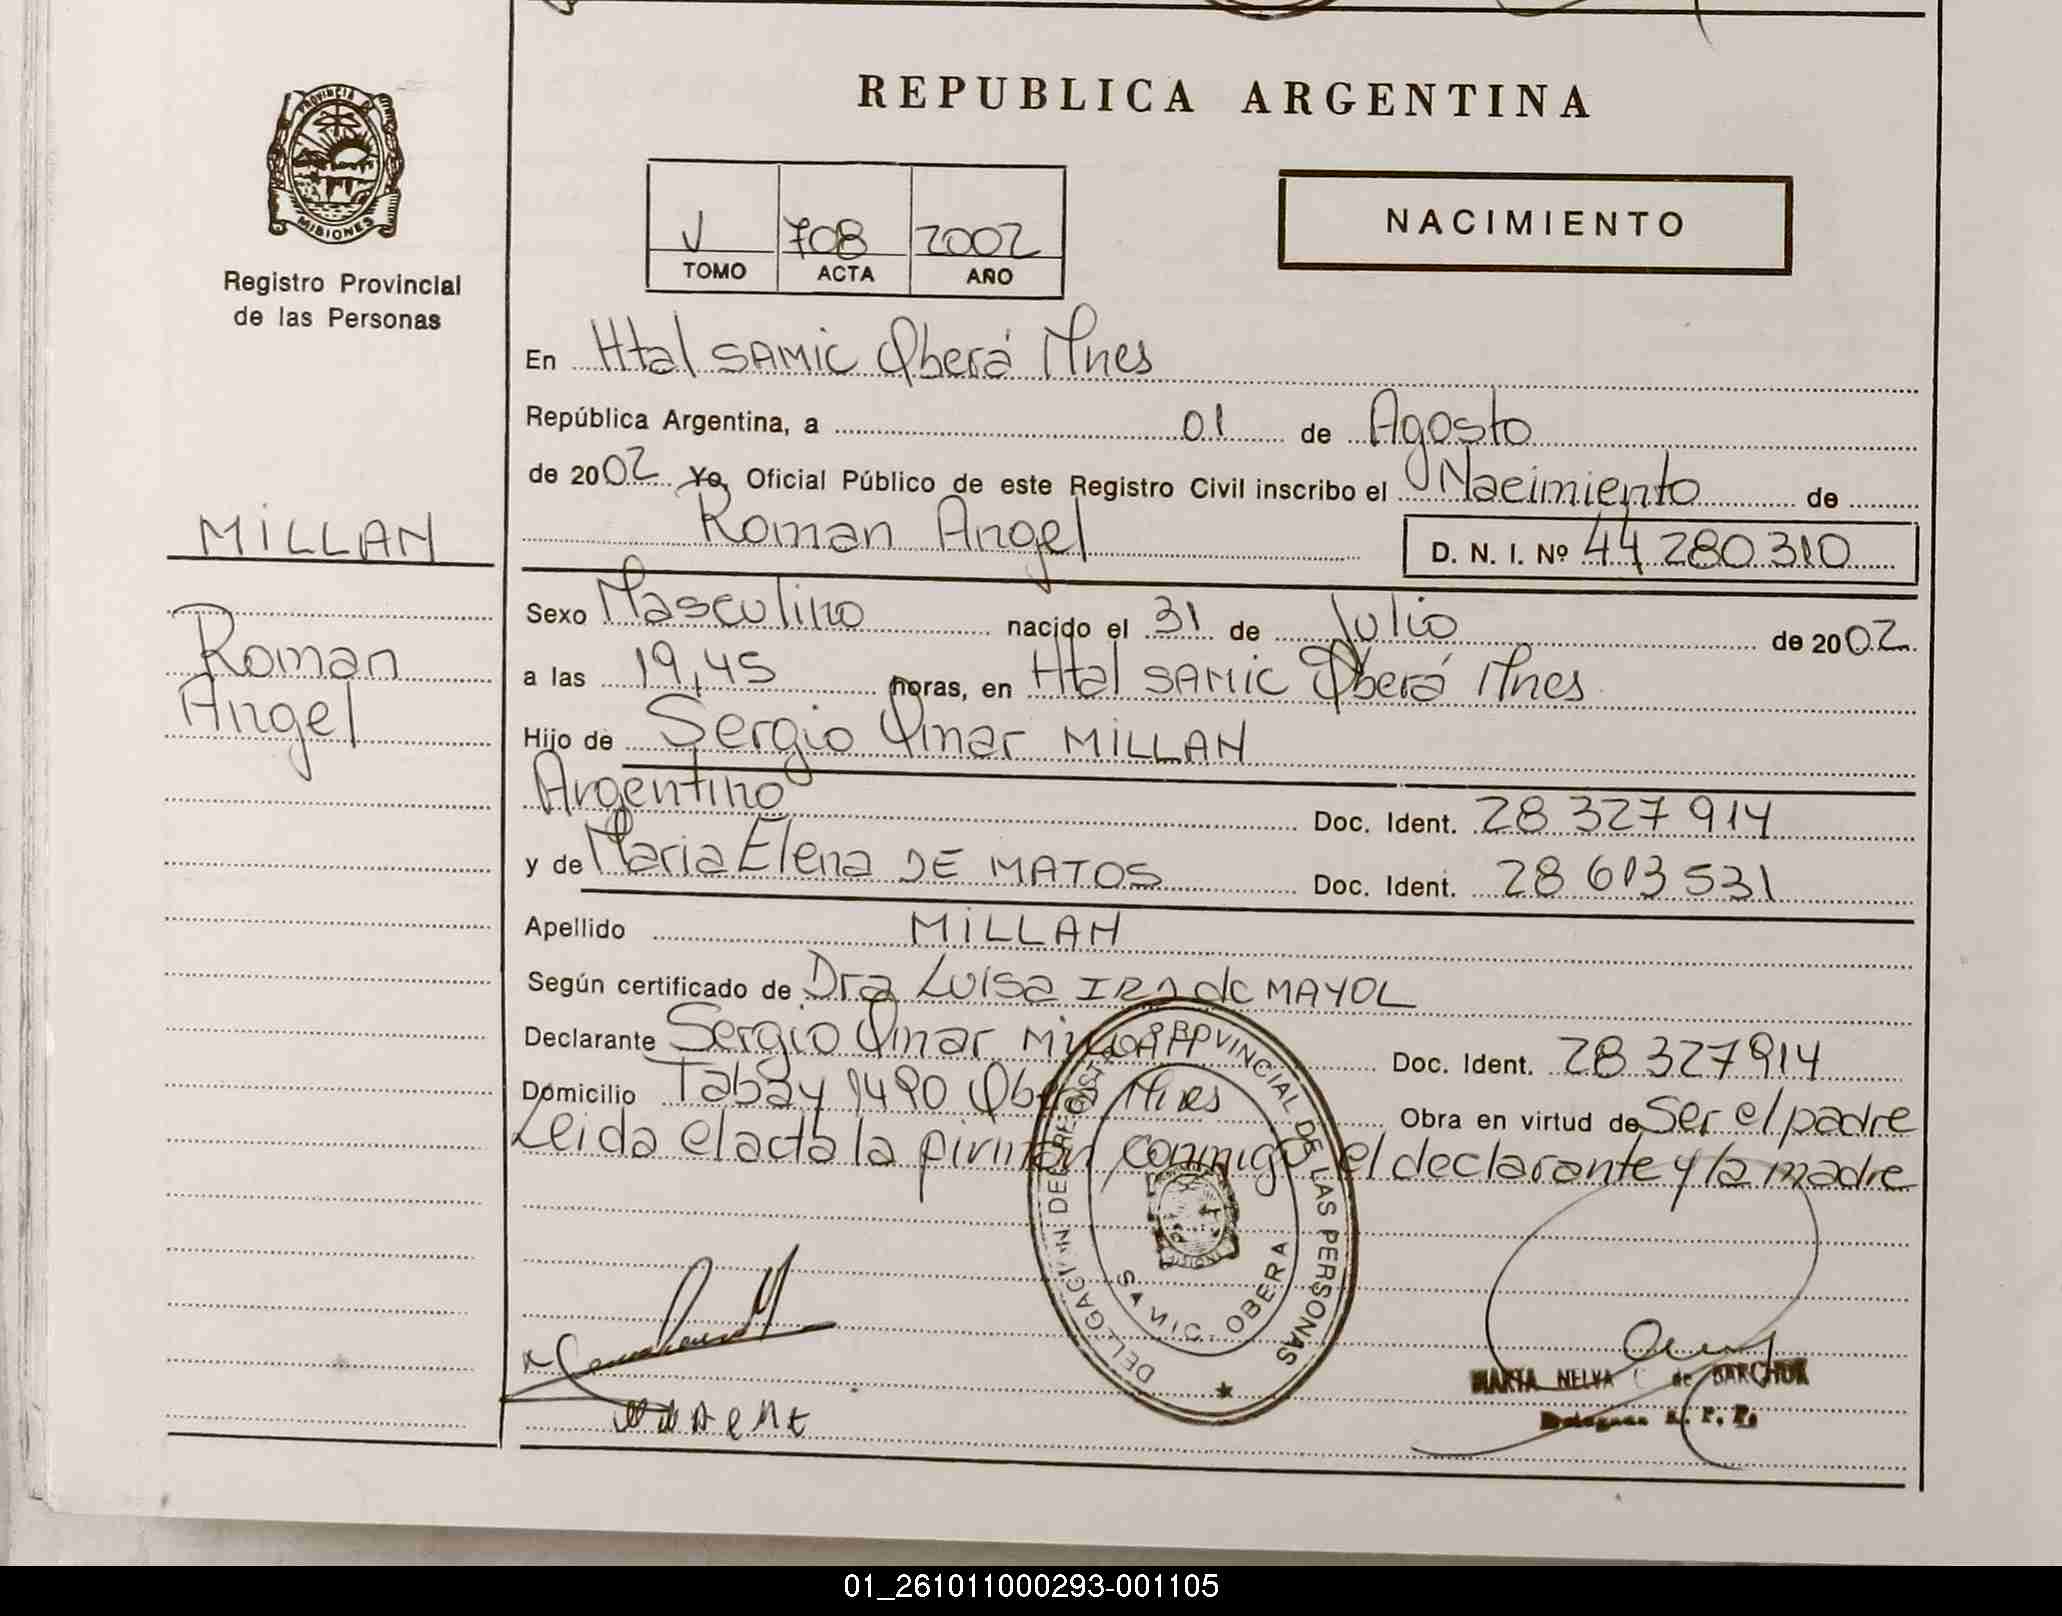 REPUBLICA ARGENTINA
PROVINCIA DE MISIONES
Registro Provincial
de las Personas
J 708 2002
TOMO ACTA AÑO
NACIMIENTO
En Htal SAMIC Oberá Mnes
República Argentina, a 01 de Agosto
de 2002 Yo, Oficial Público de este Registro Civil inscribo el Nacimiento de
Roman Angel D. N. I. Nº 44.280.310
MILLAN
Roman
Angel
Sexo Masculino nacido el 31 de Julio de 2002
a las 19,45 horas, en Htal SAMIC Oberá Mnes
Hijo de Sergio Omar MILLAN
Argentino Doc. Ident. 28 327 914
y de Maria Elena DE MATOS Doc. Ident. 28 613 531
Apellido MILLAN
Según certificado de Dra Luisa de MAYOL
Declarante Sergio Omar MILLAN Doc. Ident. 28 327914
Domicilio Tabay 1490 Oberá Mnes Obra en virtud de Ser el padre
Leida el acta la firman conmigo el declarante y la madre
DELEGACION DEL REGISTRO PROVINCIAL DE LAS PERSONAS
SAMIC. OBERA
MARIA NELVA de BARCHUK
01_261011000293-001105